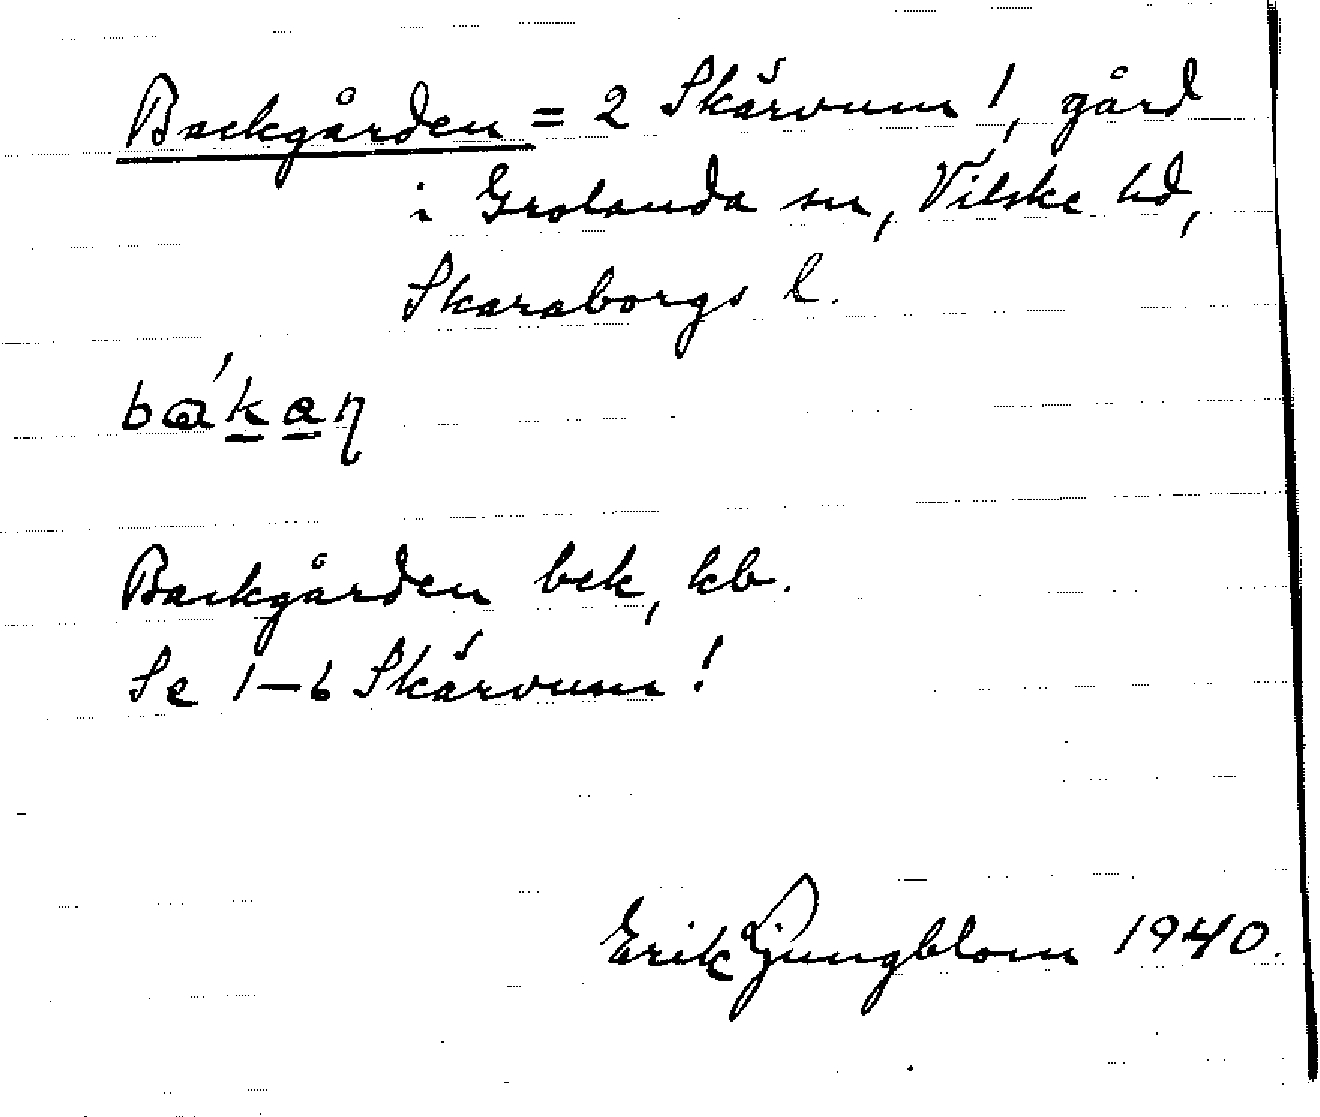 Backgården = 2 Skärvum!, gård
i Grolanda sn, Vilske hd,
Skaraborgs l.
Backgården bek, kb.
Se 1-6 Skärvum!
Erik Ljungblom 1940.